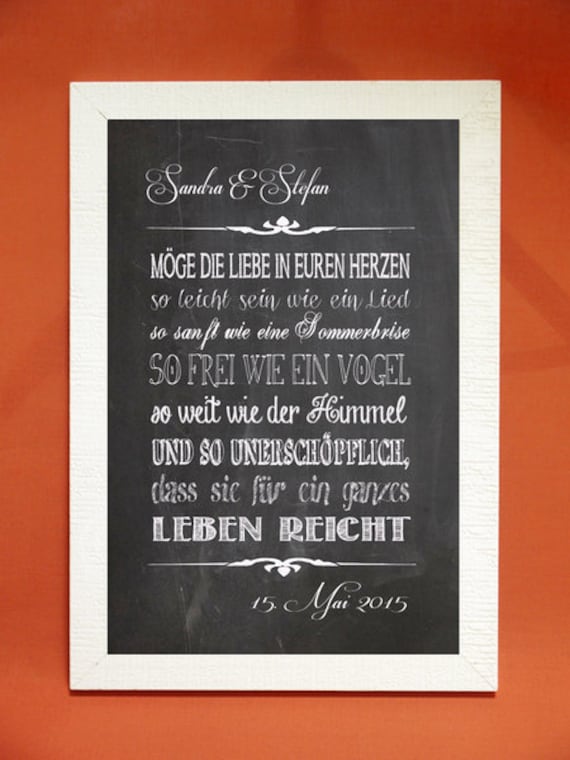 Sandra & Stefan
MÖGE DIE LIEBE IN EUREN HERZEN
so leicht sein wie ein Lied
so sanft wie eine Sommerbrise
SO FREI WIE EIN VOGEL
so weit wie der Himmel
UND SO UNERSCHÖPFLICH,
dass sie für ein ganzes
LEBEN REICHT
15. Mai 2015